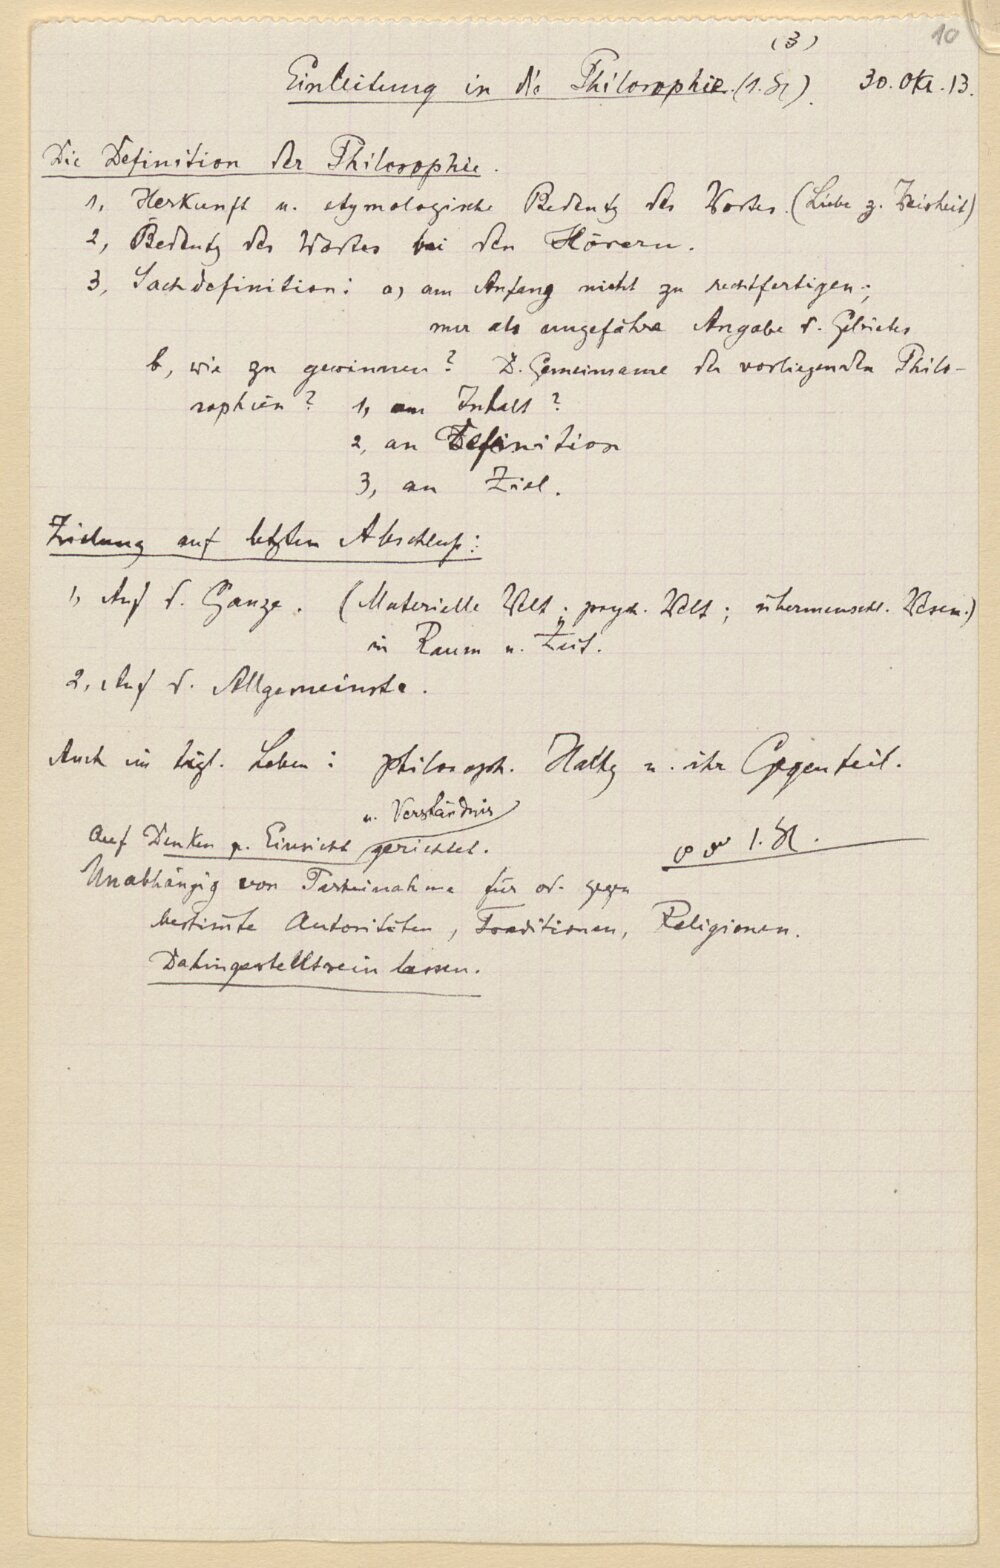 (3)
10
Einleitung in die Philosophie. (1. St.) 30. Okt. 13.
Die Definition der Philosophie.
1, Herkunft u. etymologische Bedeutg des Wortes. (Liebe z. Weisheit)
2, Bedeutg des Wortes bei den Hörern.
3, Sachdefinition: a, am Anfang nicht zu rechtfertigen;
nur als ungefähre Angabe d. Gebietes
b, wie zu gewinnen? D. Gemeinsame der vorliegenden Philo-
sophien? 1, am Inhalt?
2, an Definition
3, an Ziel.
Zielung auf letzten Abschluß:
1, Auf d. Ganze. (Materielle Welt; psych. Welt; übermenschl. Wesen.)
in Raum u. Zeit.
2, Auf d. Allgemeinste.
Auch im tägl. Leben: philosoph. Haltg u. ihr Gegenteil.
u. Verständnis
Auf Denken u. Einsicht gerichtet.
1. St.
Unabhängig von Parteinahme für od. gegen
bestimte Autoritäten, Traditionen, Religionen.
Dahingestelltsein lassen.